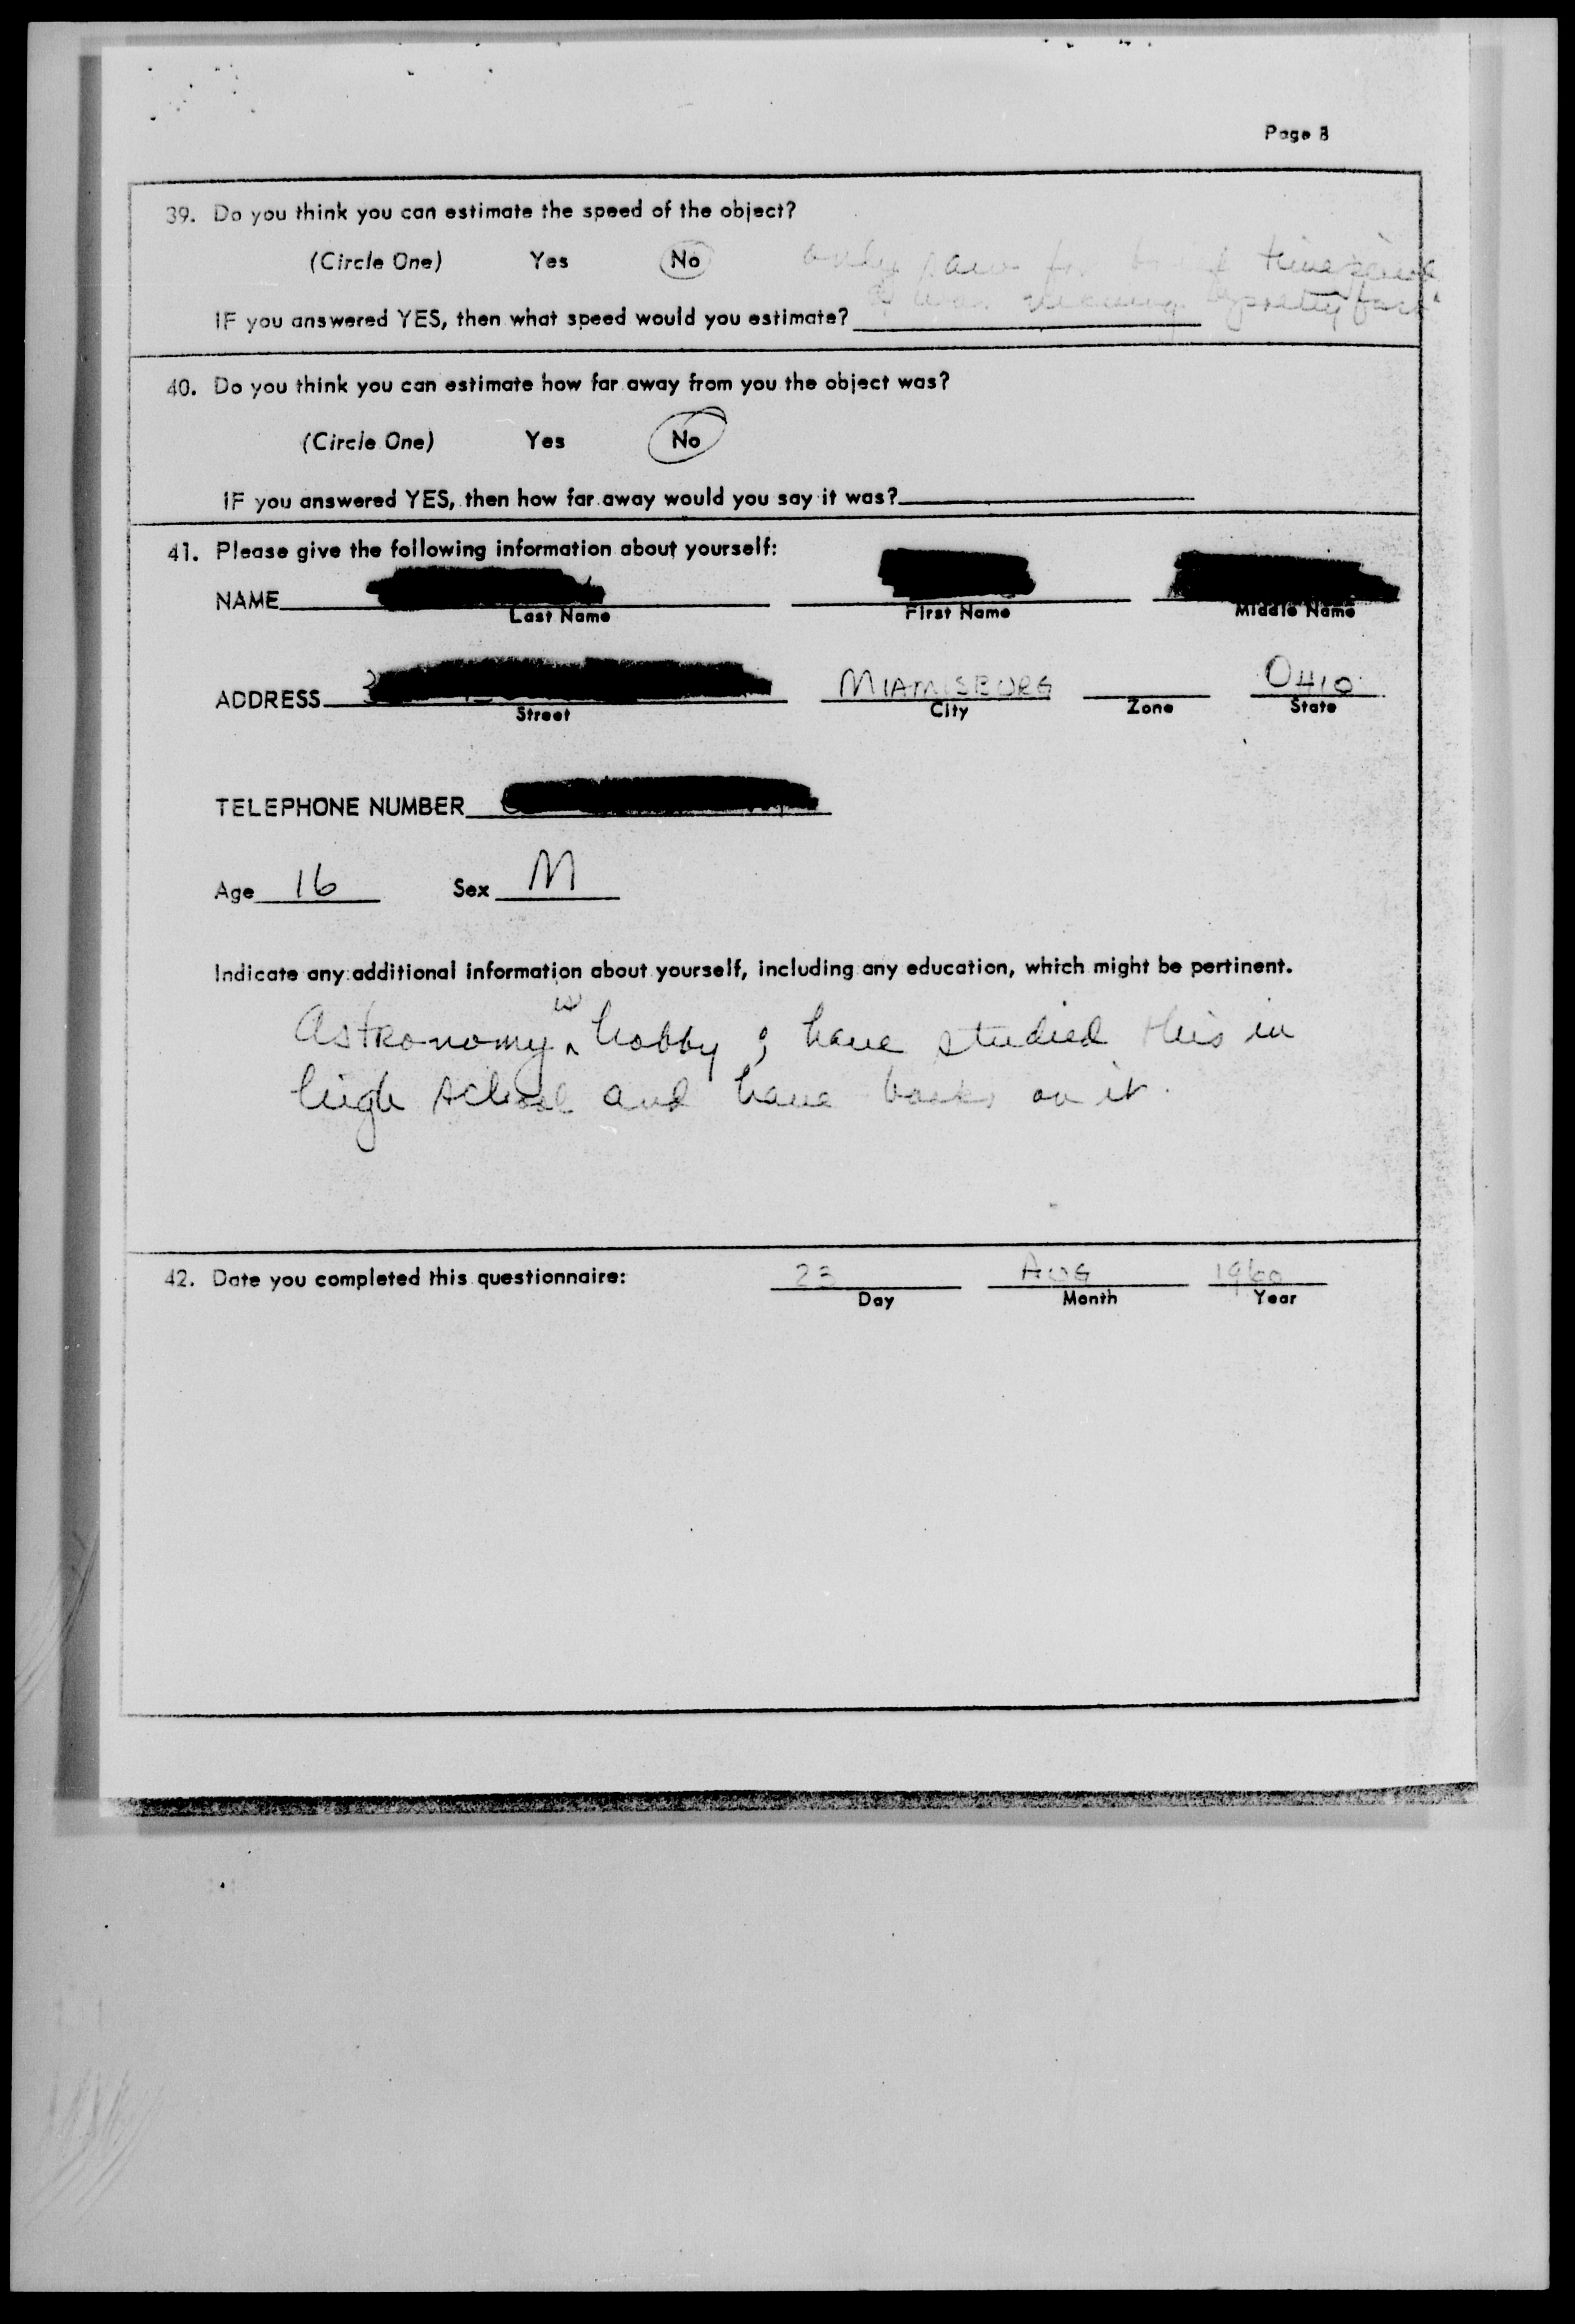 Page 8
39. Do you think you can estimate the speed of the object?
(Circle One) Yes No only saw for brief time since
it was moving pretty fast
IF you answered YES, then what speed would you estimate?
40. Do you think you can estimate how far away from you the object was?
(Circle One) Yes No
IF you answered YES, then how far away would you say it was?
41. Please give the following information about yourself:
NAME
Last Name First Name Middle Name
ADDRESS MIAMISBURG OHIO
Street City Zone State
TELEPHONE NUMBER
Age 16 Sex M
Indicate any additional information about yourself, including any education, which might be pertinent.
Astronomy is hobby; have studied this in
high school and have books on it.
42. Date you completed this questionnaire: 23 AUG 1960
Day Month Year